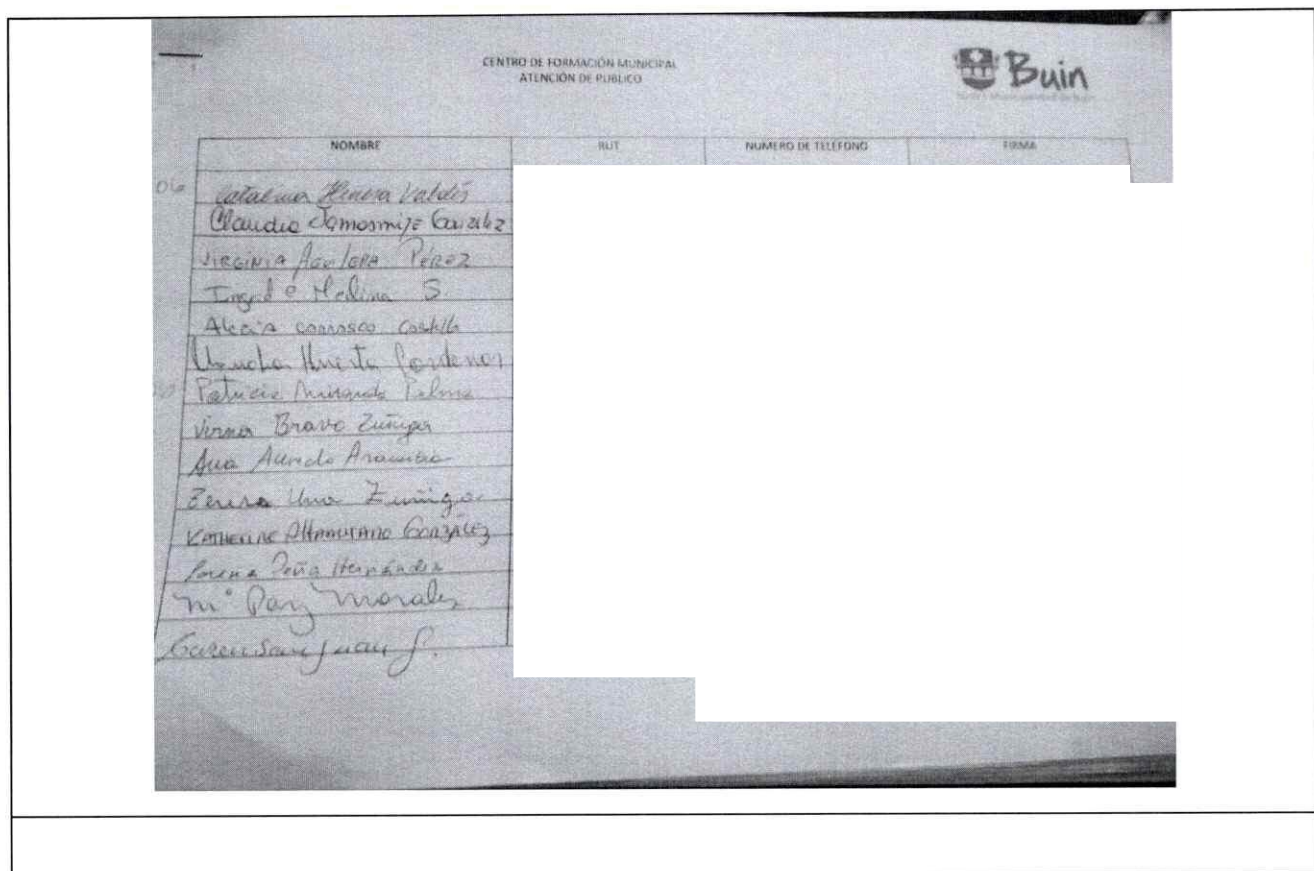 CENTRO DE FORMACIÓN MUNICIPAL
ATENCIÓN DE PUBLICO
Buin
NOMBRE RUT NUMERO DE TELEFONO FIRMA
06
Catalina Valdés
Claudia González
VIRGINIA Aguilera Pérez
Ingrid Medina S
Alexis Carrasco Castillo
Claudia Huerta Cardenas
Patricia Miranda Palma
Bravo Zuñiga
Ana Acevedo
Zuñiga
KATHERINE Altamirano González
Lorena Peña Hernández
Mª Paz Morales
Caren San Juan P.